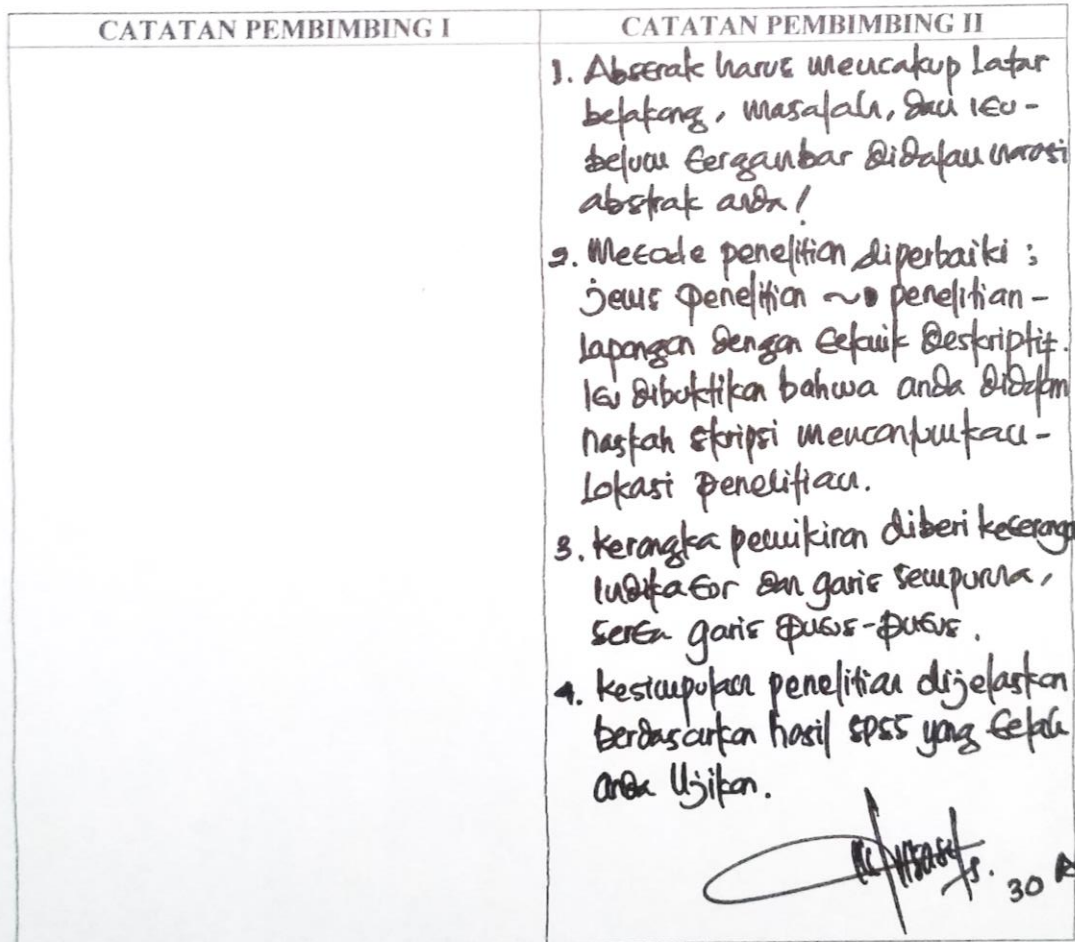 CATATAN PEMBIMBING I
CATATAN PEMBIMBING II
1. Abstrak harus mencakup Latar
belakang, masalah, dan itu -
belum tergambar didalam narasi
abstrak anda!
2. Metode penelitian diperbaiki ;
jenis penelitian ~ penelitian -
Lapangan dengan teknik Deskriptif.
itu dibuktikan bahwa anda didalam
naskah skripsi mencantumkan -
Lokasi penelitian.
3. Kerangka pemikiran diberi keterangan
indikator dan garis sempurna,
serta garis putus-putus.
4. Kesimpulan penelitian dijelaskan
berdasarkan hasil SPSS yang telah
anda Ujikan.
30